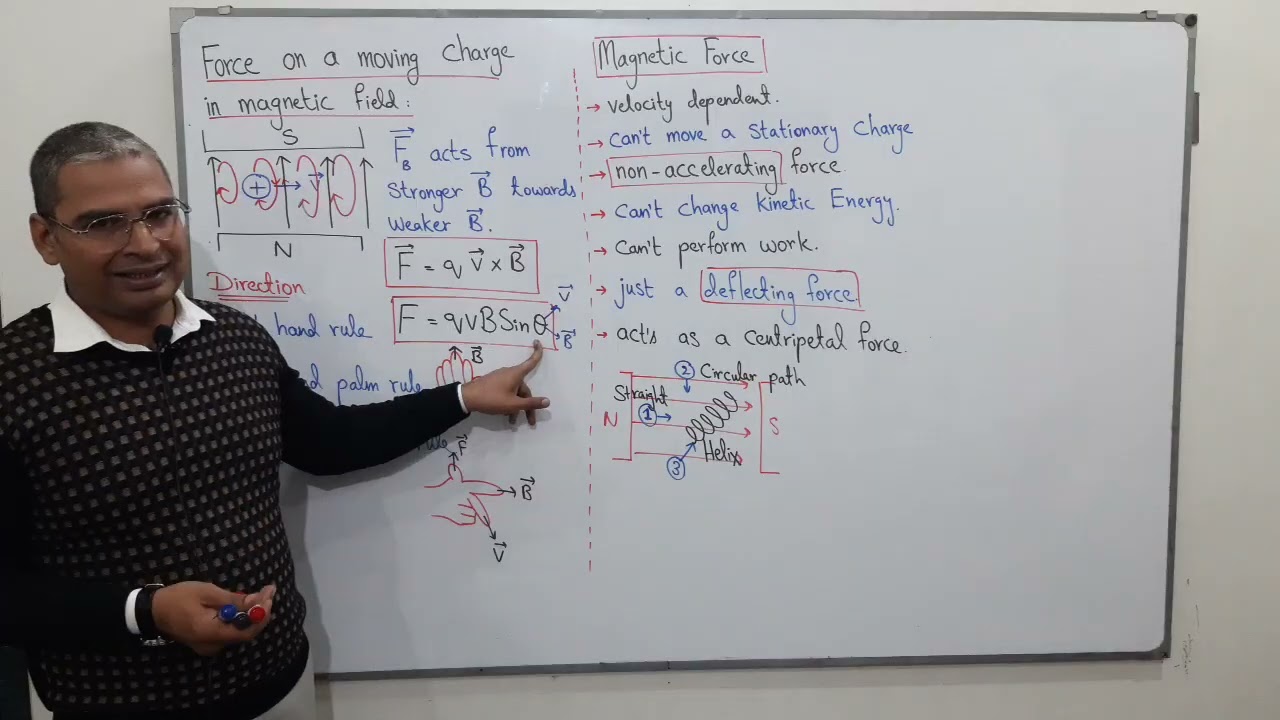 Force on a moving Charge
in magnetic field:
S
+ V
N
F B acts from
Stronger B towards
Weaker B.
F = q V × B
F = qVBSinθ
V
B
Direction
hand rule
palm rule
B
rule
F
B
V
Magnetic Force
→ velocity dependent.
→ Can't move a Stationary Charge
→ non-accelerating force
→ Can't change Kinetic Energy.
→ Can't perform work.
→ just a deflecting force
→ act's as a centripetal force.
② Circular path
Straight
① →
N
S
Helix
③